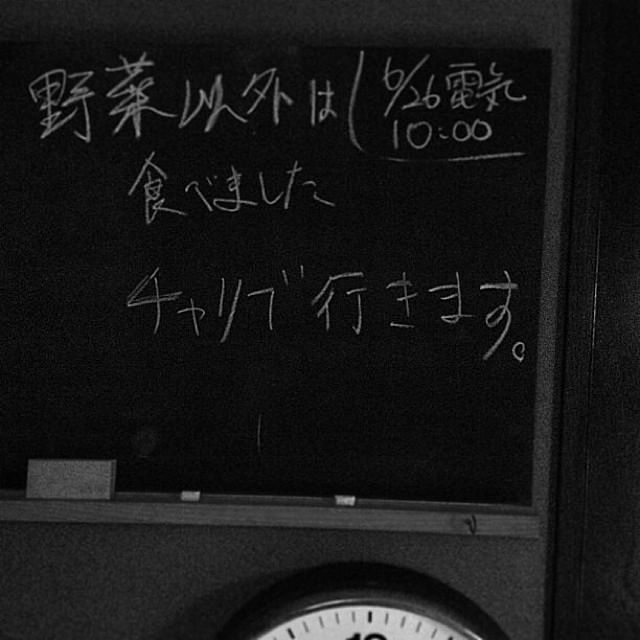 野菜以外は
食べました
チャリで行きます。
6/26電気
10:00